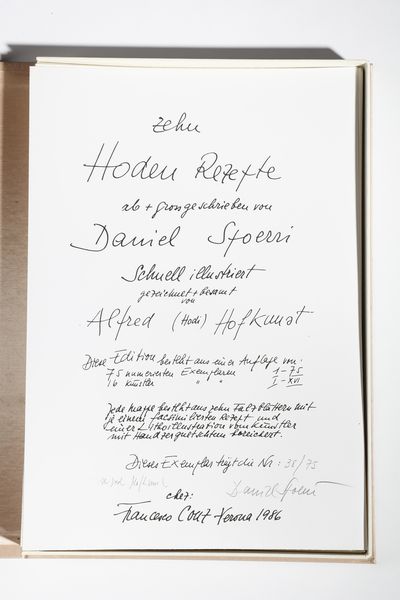 zehn
Hoden Rezepte
ab + grossgeschrieben von
Daniel Spoerri
Schnell illustriert
gezeichnet + besamt
von
Alfred (Hodi) Hofkunst
Diese Edition besteht aus einer Auflage von:
75 numerierten Exemplaren 1-75
16 Künstler " " I-XVI
Jede Mappe besteht aus zehn Falzblättern mit
je einem facsimilierten Rezept und
einer Lithoillustration vom Künstler
mit Handzerquetschten bereichert.
Dieses Exemplar trägt die Nr: 35/75
Daniel Spoerri
chez:
Francesco Conz Verona 1986